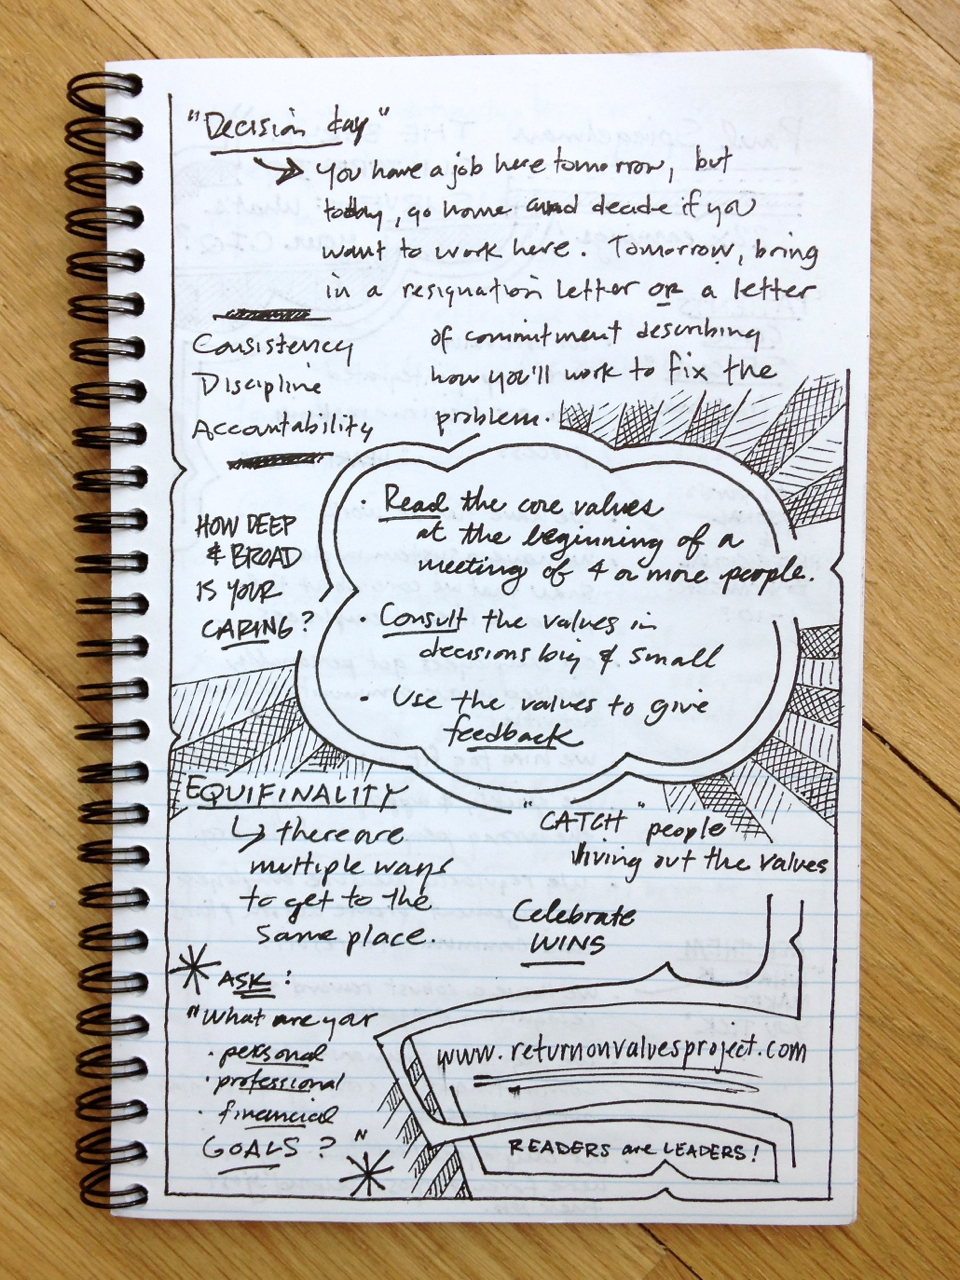 "Decision day"
You have a job here tomorrow, but
today, go home and decide if you
want to work here. Tomorrow, bring
in a resignation letter or a letter
of commitment describing
how you'll work to fix the
problem.
Consistency
Discipline
Accountability
HOW DEEP
& BROAD
IS YOUR
CARING?
· Read the core values
at the beginning of a
meeting of 4 or more people.
· Consult the values in
decisions big & small
· Use the values to give
feedback
EQUIFINALITY
there are
multiple ways
to get to the
same place.
"CATCH" people
living out the values
Celebrate
WINS
ASK:
"What are your
· personal
· professional
· financial
GOALS?"
www.returnonvaluesproject.com
READERS are LEADERS!